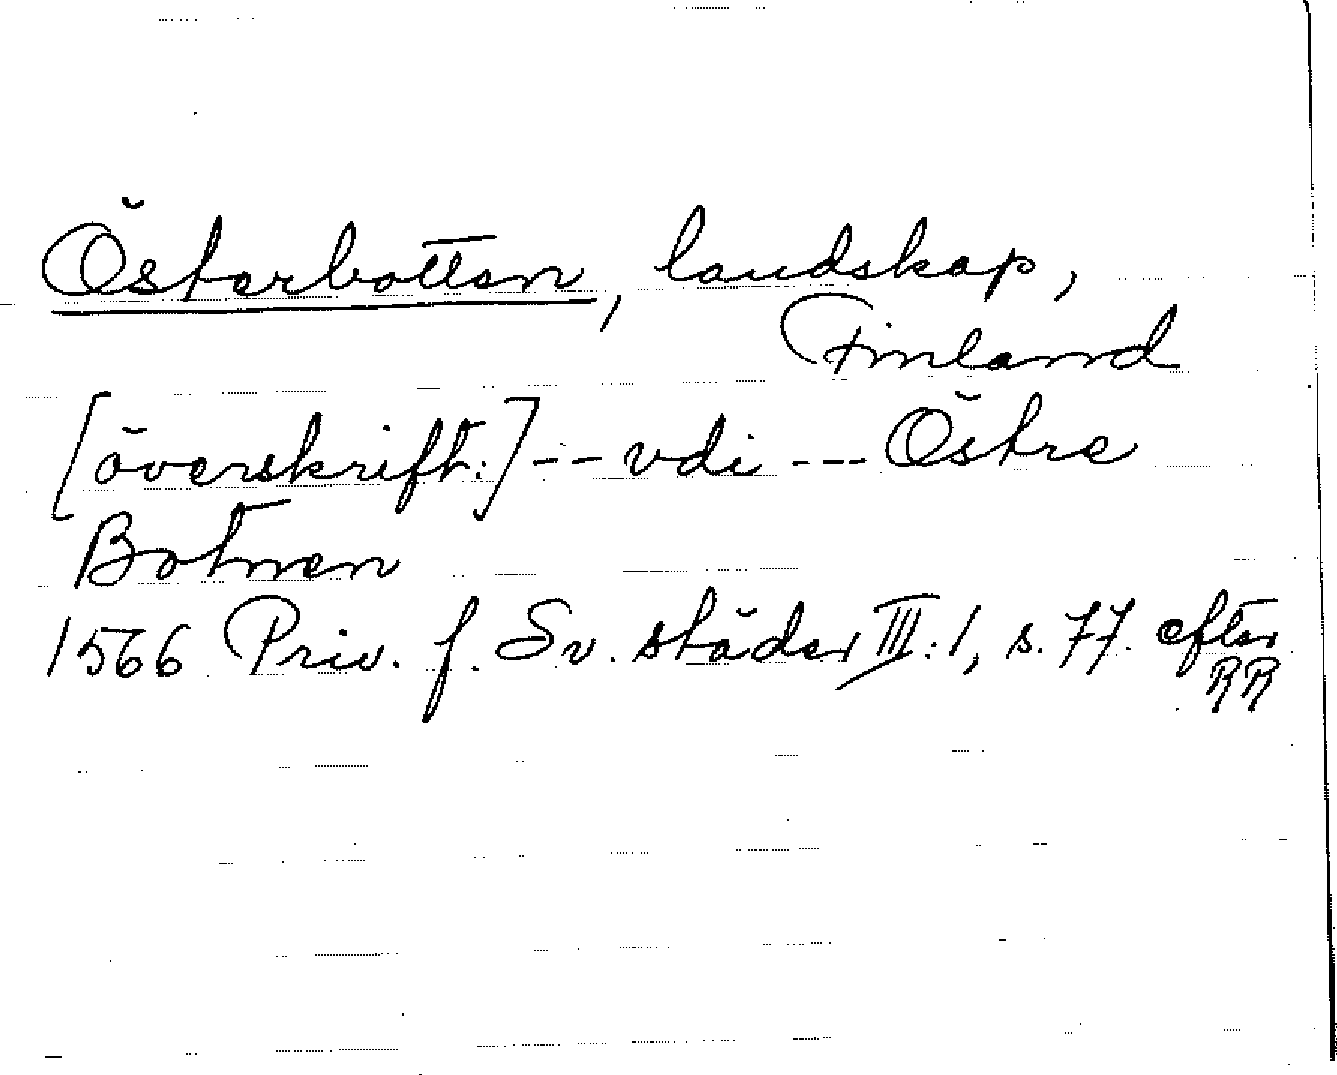 Österbotten, landskap,
Finland
[överskrift:] -- vdi --- Östre
Botnen
1566 Priv. f. Sv. städer III:1, s. 77. efter
RR